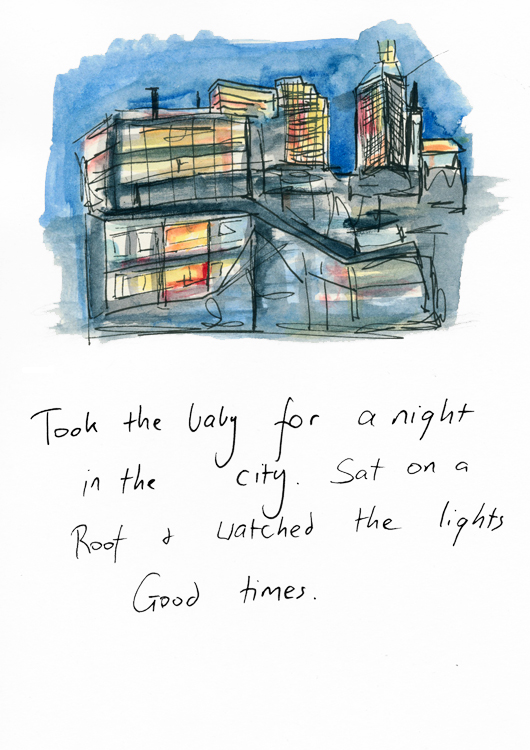 Took the baby for a night
in the city. Sat on a
Roof & watched the lights
Good times.